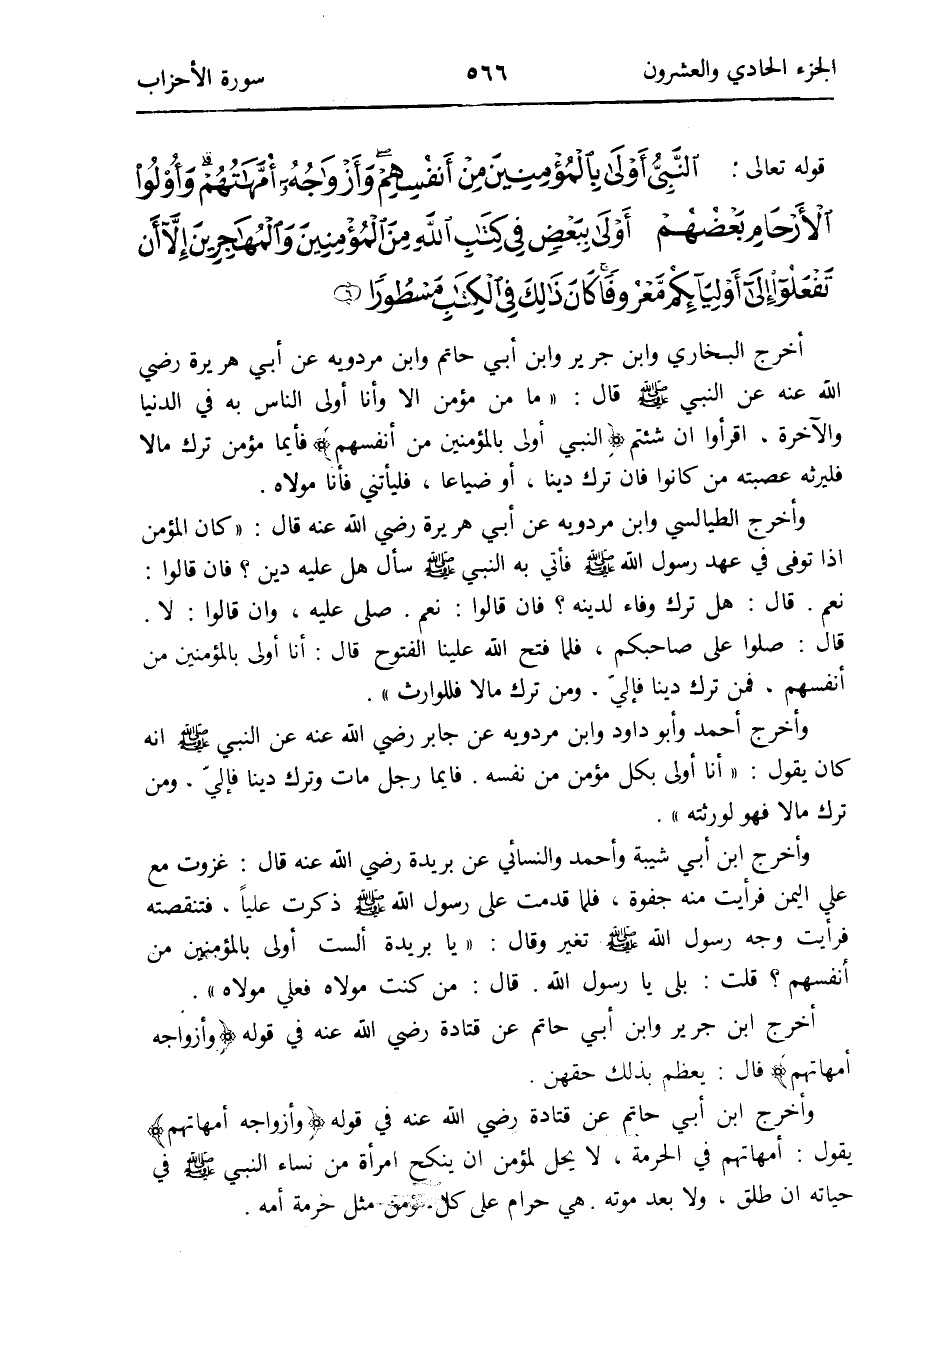 الجزء الحادي والعشرون ٥٦٦ سورة الأحزاب
قوله تعالى : ٱلنَّبِىُّ أَوْلَىٰ بِٱلْمُؤْمِنِينَ مِنْ أَنفُسِهِمْ ۖ وَأَزْوَٰجُهُۥٓ أُمَّهَـٰتُهُمْ ۗ وَأُو۟لُوا۟
ٱلْأَرْحَامِ بَعْضُهُمْ أَوْلَىٰ بِبَعْضٍ فِى كِتَـٰبِ ٱللَّهِ مِنَ ٱلْمُؤْمِنِينَ وَٱلْمُهَـٰجِرِينَ إِلَّآ أَن
تَفْعَلُوٓا۟ إِلَىٰٓ أَوْلِيَآئِكُم مَّعْرُوفًا ۚ كَانَ ذَٰلِكَ فِى ٱلْكِتَـٰبِ مَسْطُورًا ﴿٦﴾
أخرج البخاري وابن جرير وابن أبي حاتم وابن مردويه عن أبي هريرة رضي
الله عنه عن النبي ﷺ قال : « ما من مؤمن الا وأنا أولى الناس به في الدنيا
والآخرة . اقرأوا ان شئتم ﴿النبي أولى بالمؤمنين من أنفسهم﴾ فأيما مؤمن ترك مالا
فليرثه عصبته من كانوا فان ترك دينا ، أو ضياعا ، فليأتني فأنا مولاه .
وأخرج الطيالسي وابن مردويه عن أبي هريرة رضي الله عنه قال : « كان المؤمن
اذا توفى في عهد رسول الله ﷺ فأتي به النبي ﷺ سأل هل عليه دين ؟ فان قالوا :
نعم . قال : هل ترك وفاء لدينه ؟ فان قالوا : نعم . صلى عليه ، وان قالوا : لا .
قال : صلوا على صاحبكم ، فلما فتح الله علينا الفتوح قال : أنا أولى بالمؤمنين من
أنفسهم . فمن ترك دينا فإليّ . ومن ترك مالا فللوارث » .
وأخرج أحمد وأبو داود وابن مردويه عن جابر رضي الله عنه عن النبي ﷺ انه
كان يقول : « أنا أولى بكل مؤمن من نفسه . فايما رجل مات وترك دينا فإليّ . ومن
ترك مالا فهو لورثته » .
وأخرج ابن أبي شيبة وأحمد والنسائي عن بريدة رضي الله عنه قال : غزوت مع
علي اليمن فرأيت منه جفوة ، فلما قدمت على رسول الله ﷺ ذكرت علياً . فتنقصته
فرأيت وجه رسول الله ﷺ تغير وقال : « يا بريدة ألست أولى بالمؤمنين من
أنفسهم ؟ قلت : بلى يا رسول الله . قال : من كنت مولاه فعلي مولاه » .
أخرج ابن جرير وابن أبي حاتم عن قتادة رضي الله عنه في قوله ﴿وأزواجه
أمهاتهم﴾ قال : يعظم بذلك حقهن .
وأخرج ابن أبي حاتم عن قتادة رضي الله عنه في قوله ﴿وأزواجه أمهاتهم﴾
يقول : أمهاتهم في الحرمة ، لا يحل لمؤمن ان ينكح امرأة من نساء النبي ﷺ في
حياته ان طلق ، ولا بعد موته . هي حرام على كل مؤمن مثل حرمة أمه .